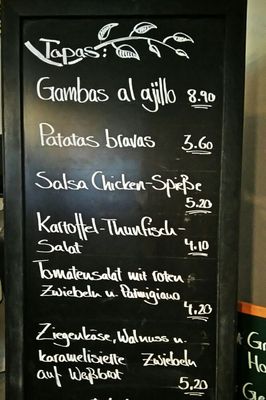 Tapas:
Gambas al ajillo 8.90
Patatas bravas 3.60
Salsa Chicken-Spieße
5.20
Kartoffel-Thunfisch-
Salat 4.10
Tomatensalat mit roten
Zwiebeln u. Parmigiano
4.20
Ziegenkäse, Walnuss u.
karamelisierte Zwiebeln
auf Weißbrot 5,20